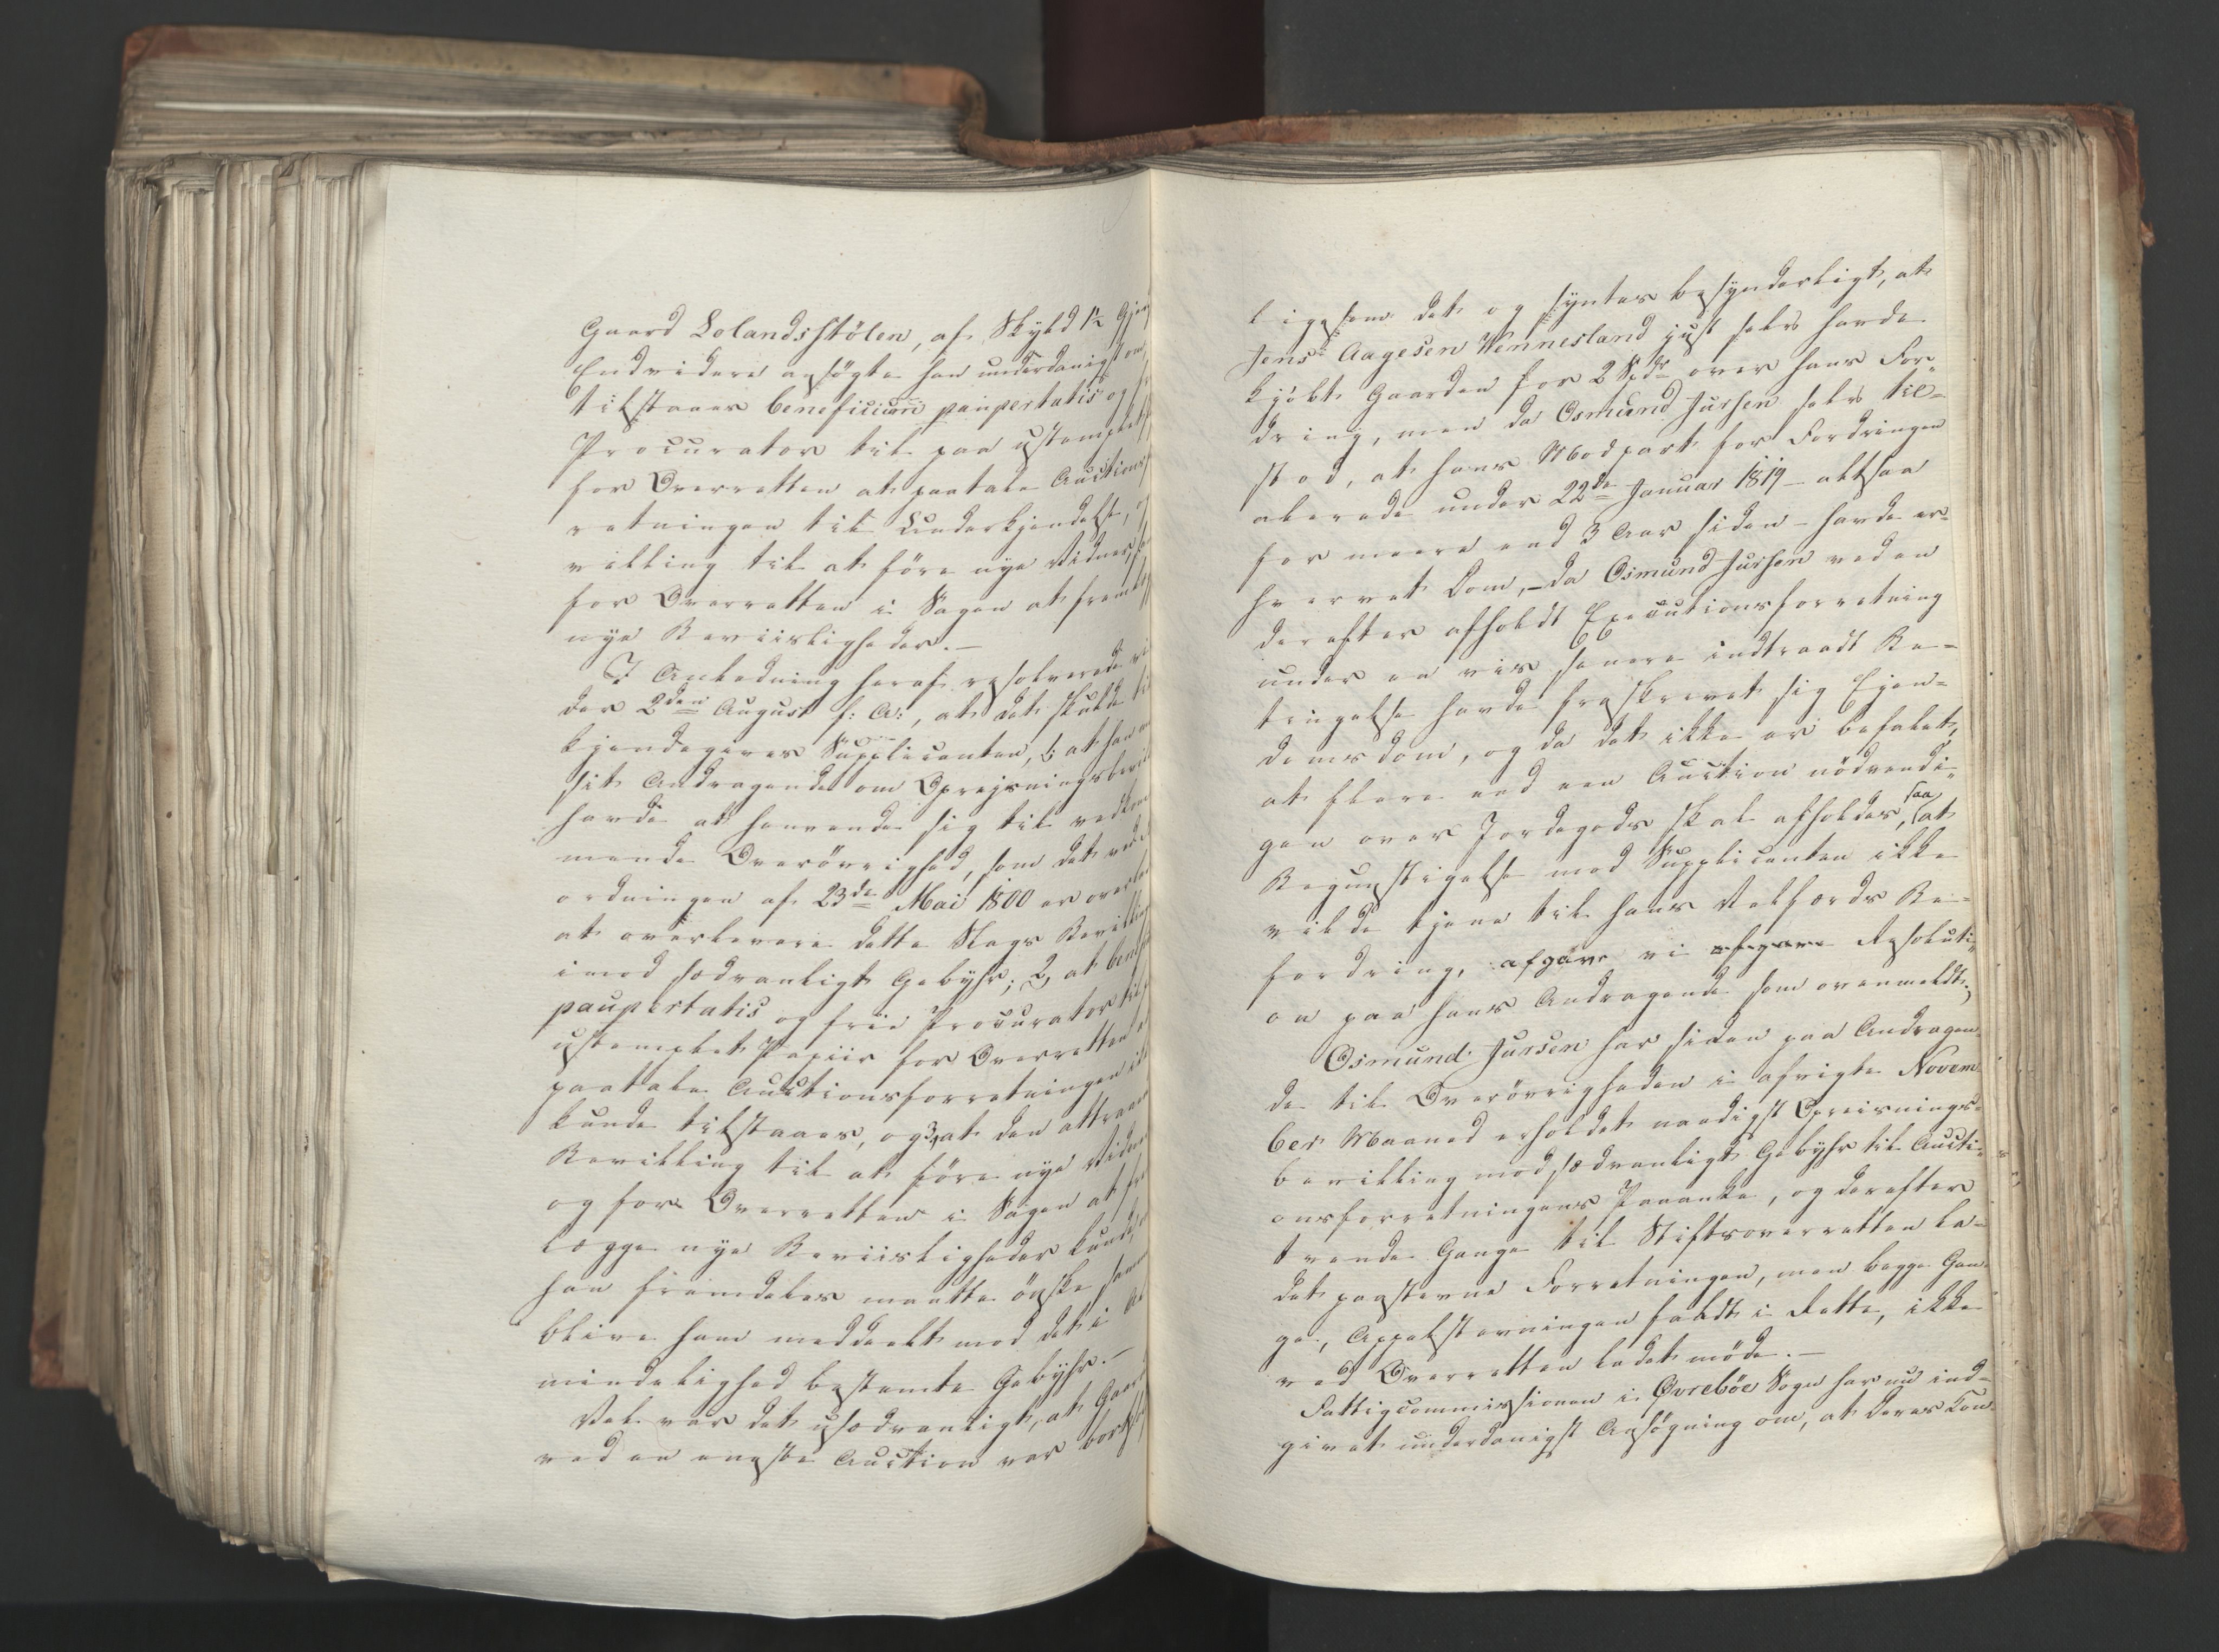 Gaard Lolandsstölen, af Skyld 1½
Endvidere ansögte han underdanigst om,
tilstaaes beneficium paupertatis og
Procurator til paa ustemplet
for Overretten at paatale Auctions
retningen til Underkjendelse,
villing til at före nye Vidner,
for Overretten i Sagen at freml
nye Beviisligheder.—
I Anledning heraf resolverede vi
der 2den August f: A:, at det skulde til
kjendegives Supplicanten, 1, at han
sit Andragende om Oprejsningsbevil
havde at henvende sig til vedkom
mende Överövrighed, som det ved
ordningen af 23de Mai 1800 er overlad
at överlevere dette Slags Bevilling
imod sædvanligt Gebyhr; 2, at benefi
paupertatis og frie Procurator til
ustemplet Papiir for Overretten
paatale Auctionsforretningen ikke
kunde tilstaaes, og 3, at den attraaede
Bevilling til at före nye Vidner
og for Overretten i Sagen at fre
lægge nye Beviisligheder kunde,
han fremdeles maatte önske
blive ham meddeelt mod det i Al
mindelighed bestemte Gebyhr.—
Vel var det usædvanligt, at Gaard
ved en eneste Auction var borts
ligesom det og syntes besynderligt, at
Jens Aagesen Vennesland just selv havde
kjöbt Gaarden for 2 Spdr over hans For„
dring, men da Osmund Jursen selv til-
stod, at hans Modpart for Fordringen
allerede under 22de Januar 1819 – altsaa
for meere end 3 Aar siden – havde er-
hvervet Dom, – da Osmund Jursen ved en
derefter afholdt Executionsforretning
under en vis senere indtraadt Be-
tingelse havde fraskrevet sig Ejen-
domsdom, og da det ikke er befalet,
at flere end een Auction nödvendi„
gen over Jordegods skal afholdes, saa at
Begunstigelse mod Supplicanten ikke
vilde tjene til hans Velfærds Be-
fordring, afgave vi afgave Resoluti„
on paa hans Andragende som ovenmeldt.
Osmund Jursen har siden paa Andragen-
de til Overövrigheden i afvigte Novem-
ber Maaned erholdet naadigst Opreisnings-
bevilling mod sædvanligt Gebyhr til Aucti-
onsforretningens Paaanke, og derefter
tvende Gange til Stiftsoverretten la-
det paastevne Forretningen, men begge Gan-
ge, Appelstevningen faldt i Rette, ikke
ved Overretten ladet möde.—
Fattigcommissionen i Øvreböe Sogn har nu ind-
givet underdanigst Ansögning om, at deres Con-